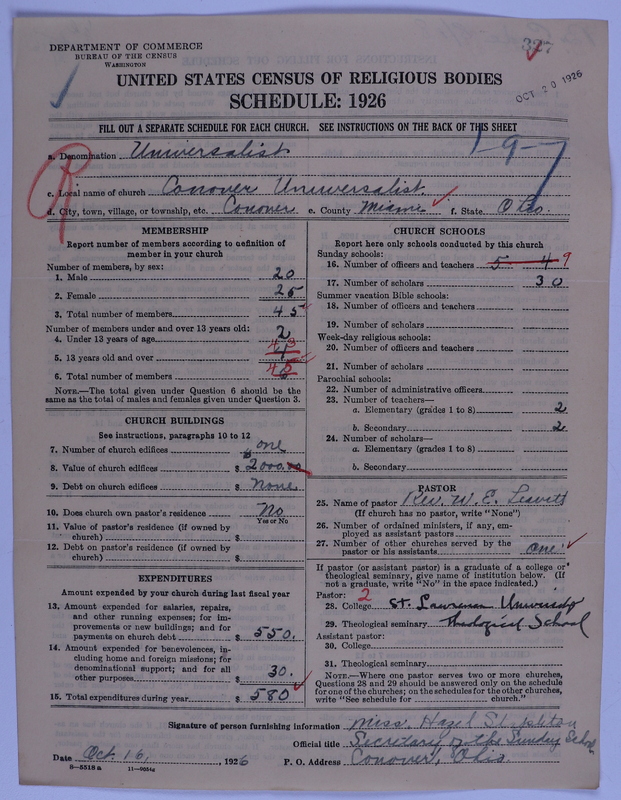 DEPARTMENT OF COMMERCE
BUREAU OF THE CENSUS
WASHINGTON
327
OCT 20 1926
UNITED STATES CENSUS OF RELIGIOUS BODIES
SCHEDULE: 1926
FILL OUT A SEPARATE SCHEDULE FOR EACH CHURCH. SEE INSTRUCTIONS ON THE BACK OF THIS SHEET
1-9-7
R
a. Denomination Universalist
c. Local name of church Conover Universalist.
d. City, town, village, or township, etc. Conover e. County Miami f. State Ohio.
MEMBERSHIP
Report number of members according to definition of
member in your church
Number of members, by sex:
1. Male 20
2. Female 25
3. Total number of members 45
Number of members under and over 13 years old:
4. Under 13 years of age 2
5. 13 years old and over 43
6. Total number of members 45
NOTE.—The total given under Question 6 should be the
same as the total of males and females given under Question 3.
CHURCH BUILDINGS
See instructions, paragraphs 10 to 12
7. Number of church edifices one
8. Value of church edifices $ 2000.00
9. Debt on church edifices $ None
10. Does church own pastor's residence No
Yes or No
11. Value of pastor's residence (if owned by
church) $
12. Debt on pastor's residence (if owned by
church) $
EXPENDITURES
Amount expended by your church during last fiscal year
13. Amount expended for salaries, repairs,
and other running expenses; for im-
provements or new buildings; and for
payments on church debt $ 550.
14. Amount expended for benevolences, in-
cluding home and foreign missions; for
denominational support; and for all
other purposes $ 30.
15. Total expenditures during year $ 580
CHURCH SCHOOLS
Report here only schools conducted by this church
Sunday schools:
16. Number of officers and teachers 5 4 9
17. Number of scholars 30
Summer vacation Bible schools:
18. Number of officers and teachers
19. Number of scholars
Week-day religious schools:
20. Number of officers and teachers
21. Number of scholars
Parochial schools:
22. Number of administrative officers
23. Number of teachers—
a. Elementary (grades 1 to 8) 2
b. Secondary 2
24. Number of scholars—
a. Elementary (grades 1 to 8)
b. Secondary
PASTOR
25. Name of pastor Rev. W. E. Leavitt
(If church has no pastor, write "None")
26. Number of ordained ministers, if any, em-
ployed as assistant pastors
27. Number of other churches served by the
pastor or his assistants one.
If pastor (or assistant pastor) is a graduate of a college or
theological seminary, give name of institution below. (If
not a graduate, write "No" in the space indicated.)
Pastor: 2
28. College St. Lawrence University
29. Theological seminary Theological School
Assistant pastor:
30. College
31. Theological seminary
NOTE.—Where one pastor serves two or more churches,
Questions 28 and 29 should be answered only on the schedule
for one of the churches; on the schedules for the other churches,
write "See schedule for church."
Signature of person furnishing information Miss. Hazel
Official title Secretary of the Sunday School
Date Oct. 16, 1926 P. O. Address Conover, Ohio.
8—5518a 11—9054g